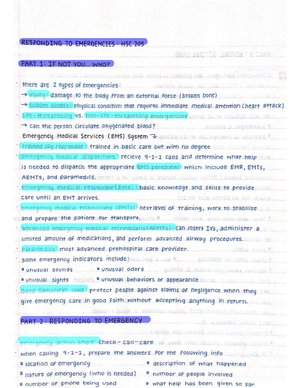 RESPONDING TO EMERGENCIES - HSC 205
PART 1: IF NOT YOU... WHO?
there are 2 types of emergencies:
→ injury: damage to the body from an external force (broken bone)
→ sudden illness: physical condition that requires immediate medical attention (heart attack)
life-threatening vs. non-life-threatening emergencies
→ can the person circulate oxygenated blood?
Emergency Medical Services (EMS) System
trained lay responder: trained in basic care but with no degree
emergency medical dispatchers: recieve 9-1-1 calls and determine what help
is needed to dispatch the appropriate EMS personnel which include EMR, EMTs,
AEMTs, and paramedics.
emergency medical responder (EMR): basic knowledge and skills to provide
care until an EMT arrives.
emergency medical technicians (EMTs): next level of training, work to stabilize
and prepare the patient for transport.
advanced emergency medical technicians (AEMTs): can insert IVs, administer a
limited amount of medications, and perform advanced airway procedures.
paramedics: most advanced prehospital care provider.
some emergency indicators include:
* unusual sounds * unusual odors
* unusual sights * unusual behaviors or appearance
Good Samaritan laws: protect people against claims of negligence when they
give emergency care in good faith without accepting anything in return.
PART 2: RESPONDING TO EMERGENCY
emergency action steps: check-call-care
when calling 9-1-1, prepare the answers for the following info
* location of emergency * description of what happened
* nature of emergency (who is needed) * number of people involved
* number of phone being used * what help has been given so far